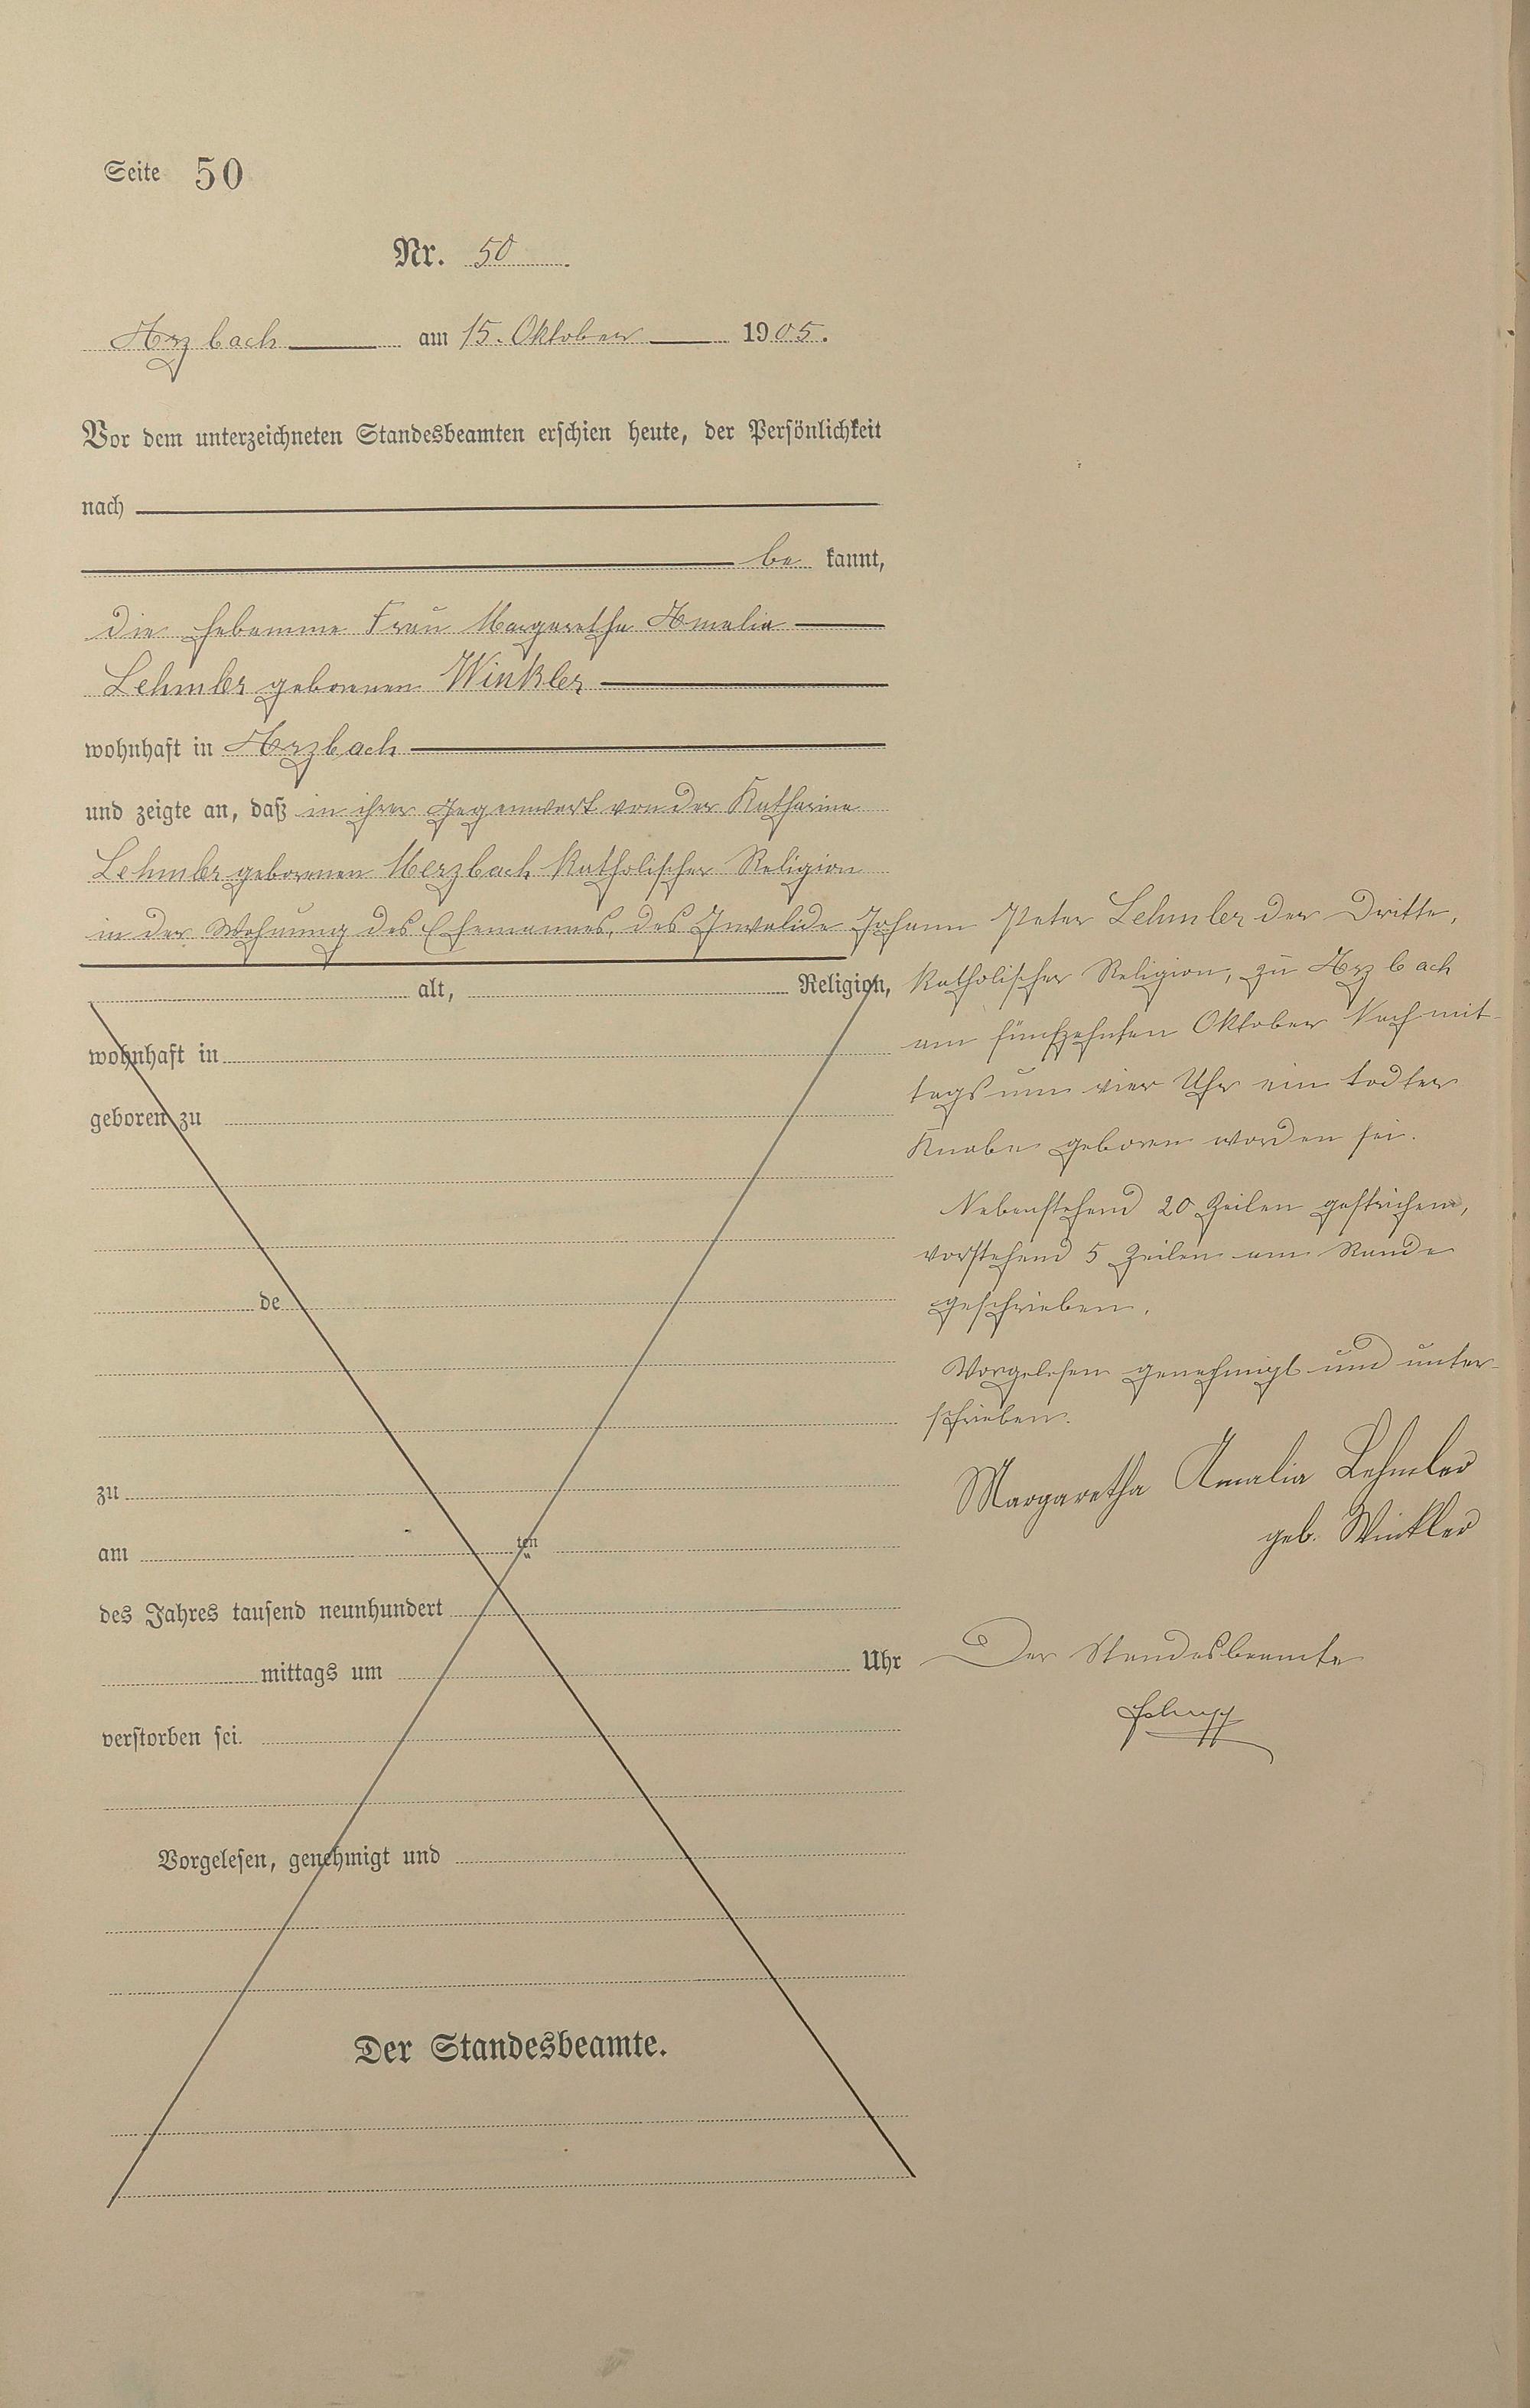 Seite 50
Nr. 50
Arzbach am 15. Oktober 1905.
Vor dem unterzeichneten Standesbeamten erschien heute, der Persönlichkeit
nach
be kannt,
die Hebamme Frau Margaretha Amalia
Lehmler geborenen Winkler
wohnhaft in Arzbach
und zeigte an, daß in ihrer Gegenwart von der Katharina
Lehmler geborenen Merzbach katholischer Religion
in der Wohnung des Ehemannes, des Invalide Johann Peter Lehmler der Dritte,
alt, Religion,
wohnhaft in
geboren zu
de
zu
am ten
des Jahres tausend neunhundert
mittags um Uhr
verstorben sei.
Vorgelesen, genehmigt und
Der Standesbeamte.
katholischer Religion, zu Arzbach
am fünfzehnten Oktober Nachmit-
tags um vier Uhr ein todter
Knabe geboren worden sei.
Nebenstehend 20 Zeilen gestrichen,
vorstehend 5 Zeilen am Rande
geschrieben.
Vorgelesen genehmigt und unter-
schrieben.
Margaretha Amalia Lehmler
geb. Winkler
Der Standesbeamte